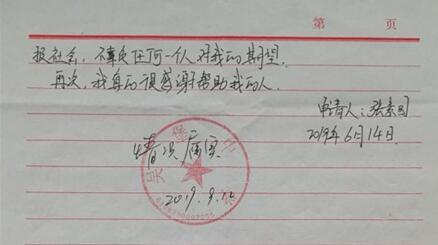 第 页
报社会,不辜负任何一个人对我的期望.
再次,我真的很感谢帮助我的人.
申请人:张素
2019年6月14日.
情况属实
2019.8.12